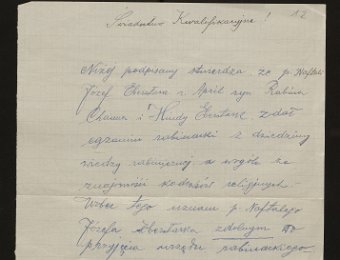 Świadectwo Kwalifikacyjne! 12
Niżej podpisany stwierdza, że p. Naftali
Józef r. April syn Rabina
Chaima i Hindy zdał
egzamin rabinacki z dziedziny
wiedzy rabinicznej a wogóle ze
znajomości kodeksów religijnych.-
Wobec tego uznaję p. Naftalego
Józefa zdolnym do
przyjęcia urzędu rabinackiego.